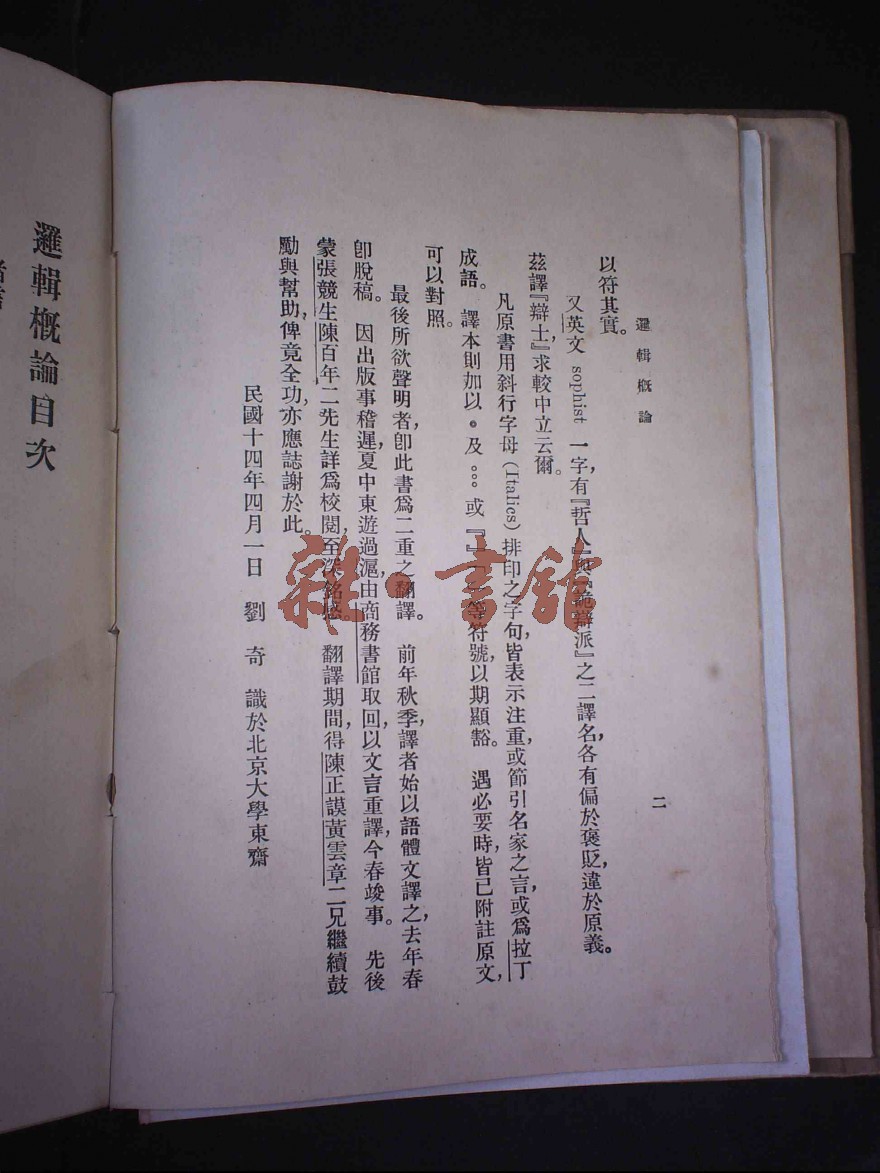 邏輯概論
二
以符其實。
又英文 sophist 一字，有『哲人』與『詭辯派』之二譯名，各有偏於褒貶，違於原義。
茲譯『辯士』，求較中立云爾。
凡原書用斜行字母(Italics)排印之字句，皆表示注重，或節引名家之言，或爲拉丁
成語。譯本則加以。及。。。或『』「」等符號，以期顯豁。遇必要時，皆已附註原文，
可以對照。
最後所欲聲明者，卽此書爲二重之翻譯。前年秋季，譯者始以語體文譯之，去年春
卽脫稿。因出版事稽遲，夏中東遊過滬，由商務書館取回，以文言重譯，今春竣事。先後
蒙張競生陳百年二先生詳爲校閱，至深銘感。翻譯期間，得陳正謨黃雲章二兄繼續鼓
勵與幫助，俾竟全功，亦應誌謝於此。
民國十四年四月一日 劉奇 識於北京大學東齋
邏輯概論目次
雜·書館